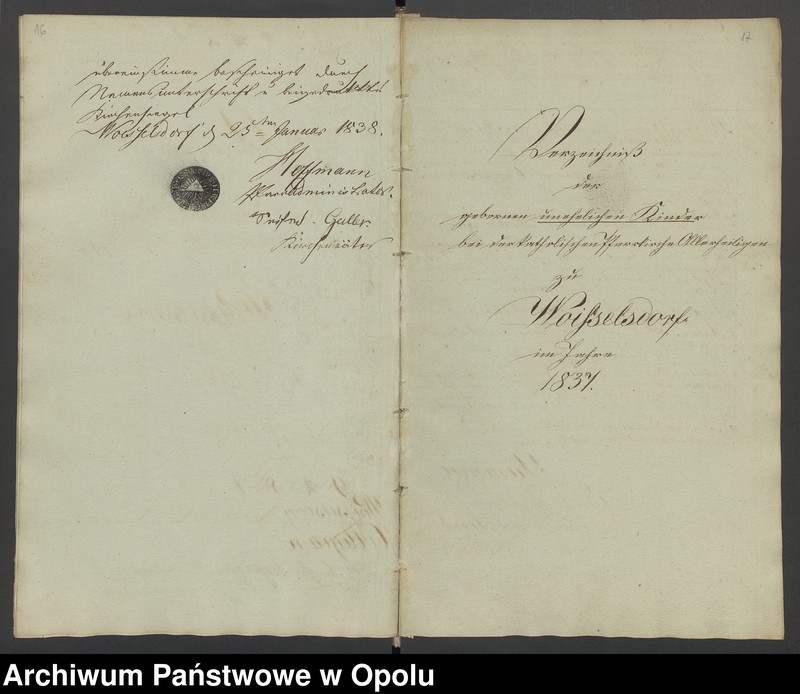 16
übereinstimme bescheiniget durch
Namensunterschrift u beigedrucktes
Kirchensiegel
Woisselsdorf d 25ten Januar 1838.
Hoffmann
Pfarradministrator.
Seifert. Galle.
Kirchenväter
17
Verzeichniß
der
gebornen unehelichen Kinder
bei der katholischen Pfarrkirche Allerheiligen
zu
Woisselsdorf
im Jahre
1837.
Archiwum Państwowe w Opolu